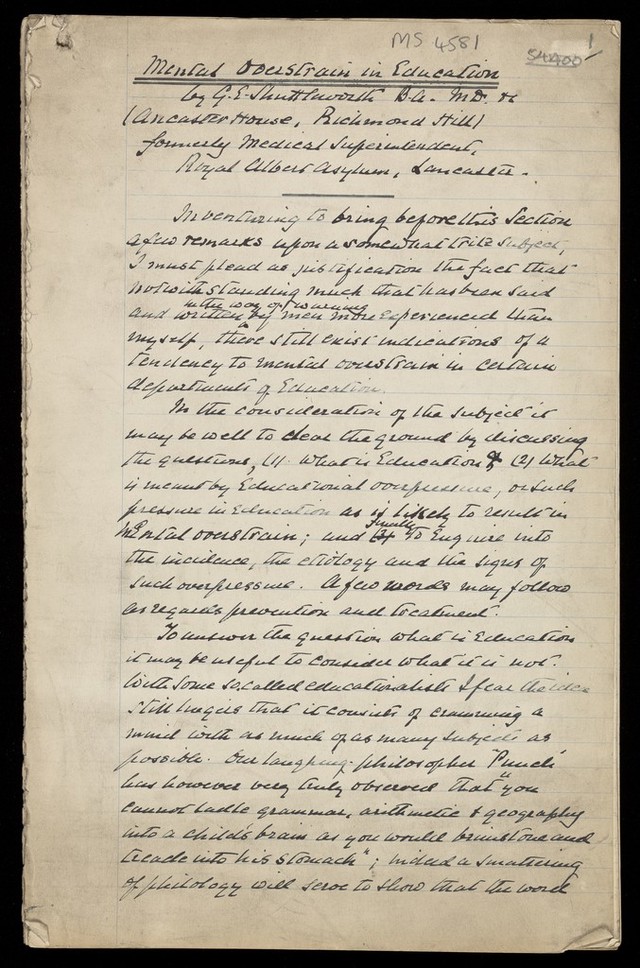 MS 4581
1
54400
Mental Overstrain in Education
by G. E. Shuttleworth B.A. M.D. &c
(Ancaster House, Richmond Hill)
formerly Medical Superintendent,
Royal Albert Asylum, Lancaster.
In venturing to bring before this Section
a few remarks upon a somewhat trite subject,
I must plead as justification the fact that
notwithstanding much that has been said
in the way of warning
and written by men more experienced than
myself, there still exist indications of a
tendency to mental overstrain in certain
departments of Education.
In the consideration of the subject it
may be well to clear the ground by discussing
the questions, (1) What is Education & (2) What
is meant by Educational overpressure, or such
pressure in Education as is likely to result in
finally
mental overstrain; and to Enquire into
the incidence, the etiology and the signs of
such overpressure. A few words may follow
as regards prevention and treatment.
To answer the question what is Education
it may be useful to consider what it is not.
With some so-called educationalists I fear the idea
still lingers that it consists of cramming a
mind with as much of as many subjects as
possible. Our laughing philosopher "Punch"
has however very truly observed that "you
cannot ladle grammar, arithmetic & geography
into a child's brain as you would brimstone and
treacle into his stomach"; indeed a smattering
of philology will serve to show that the word